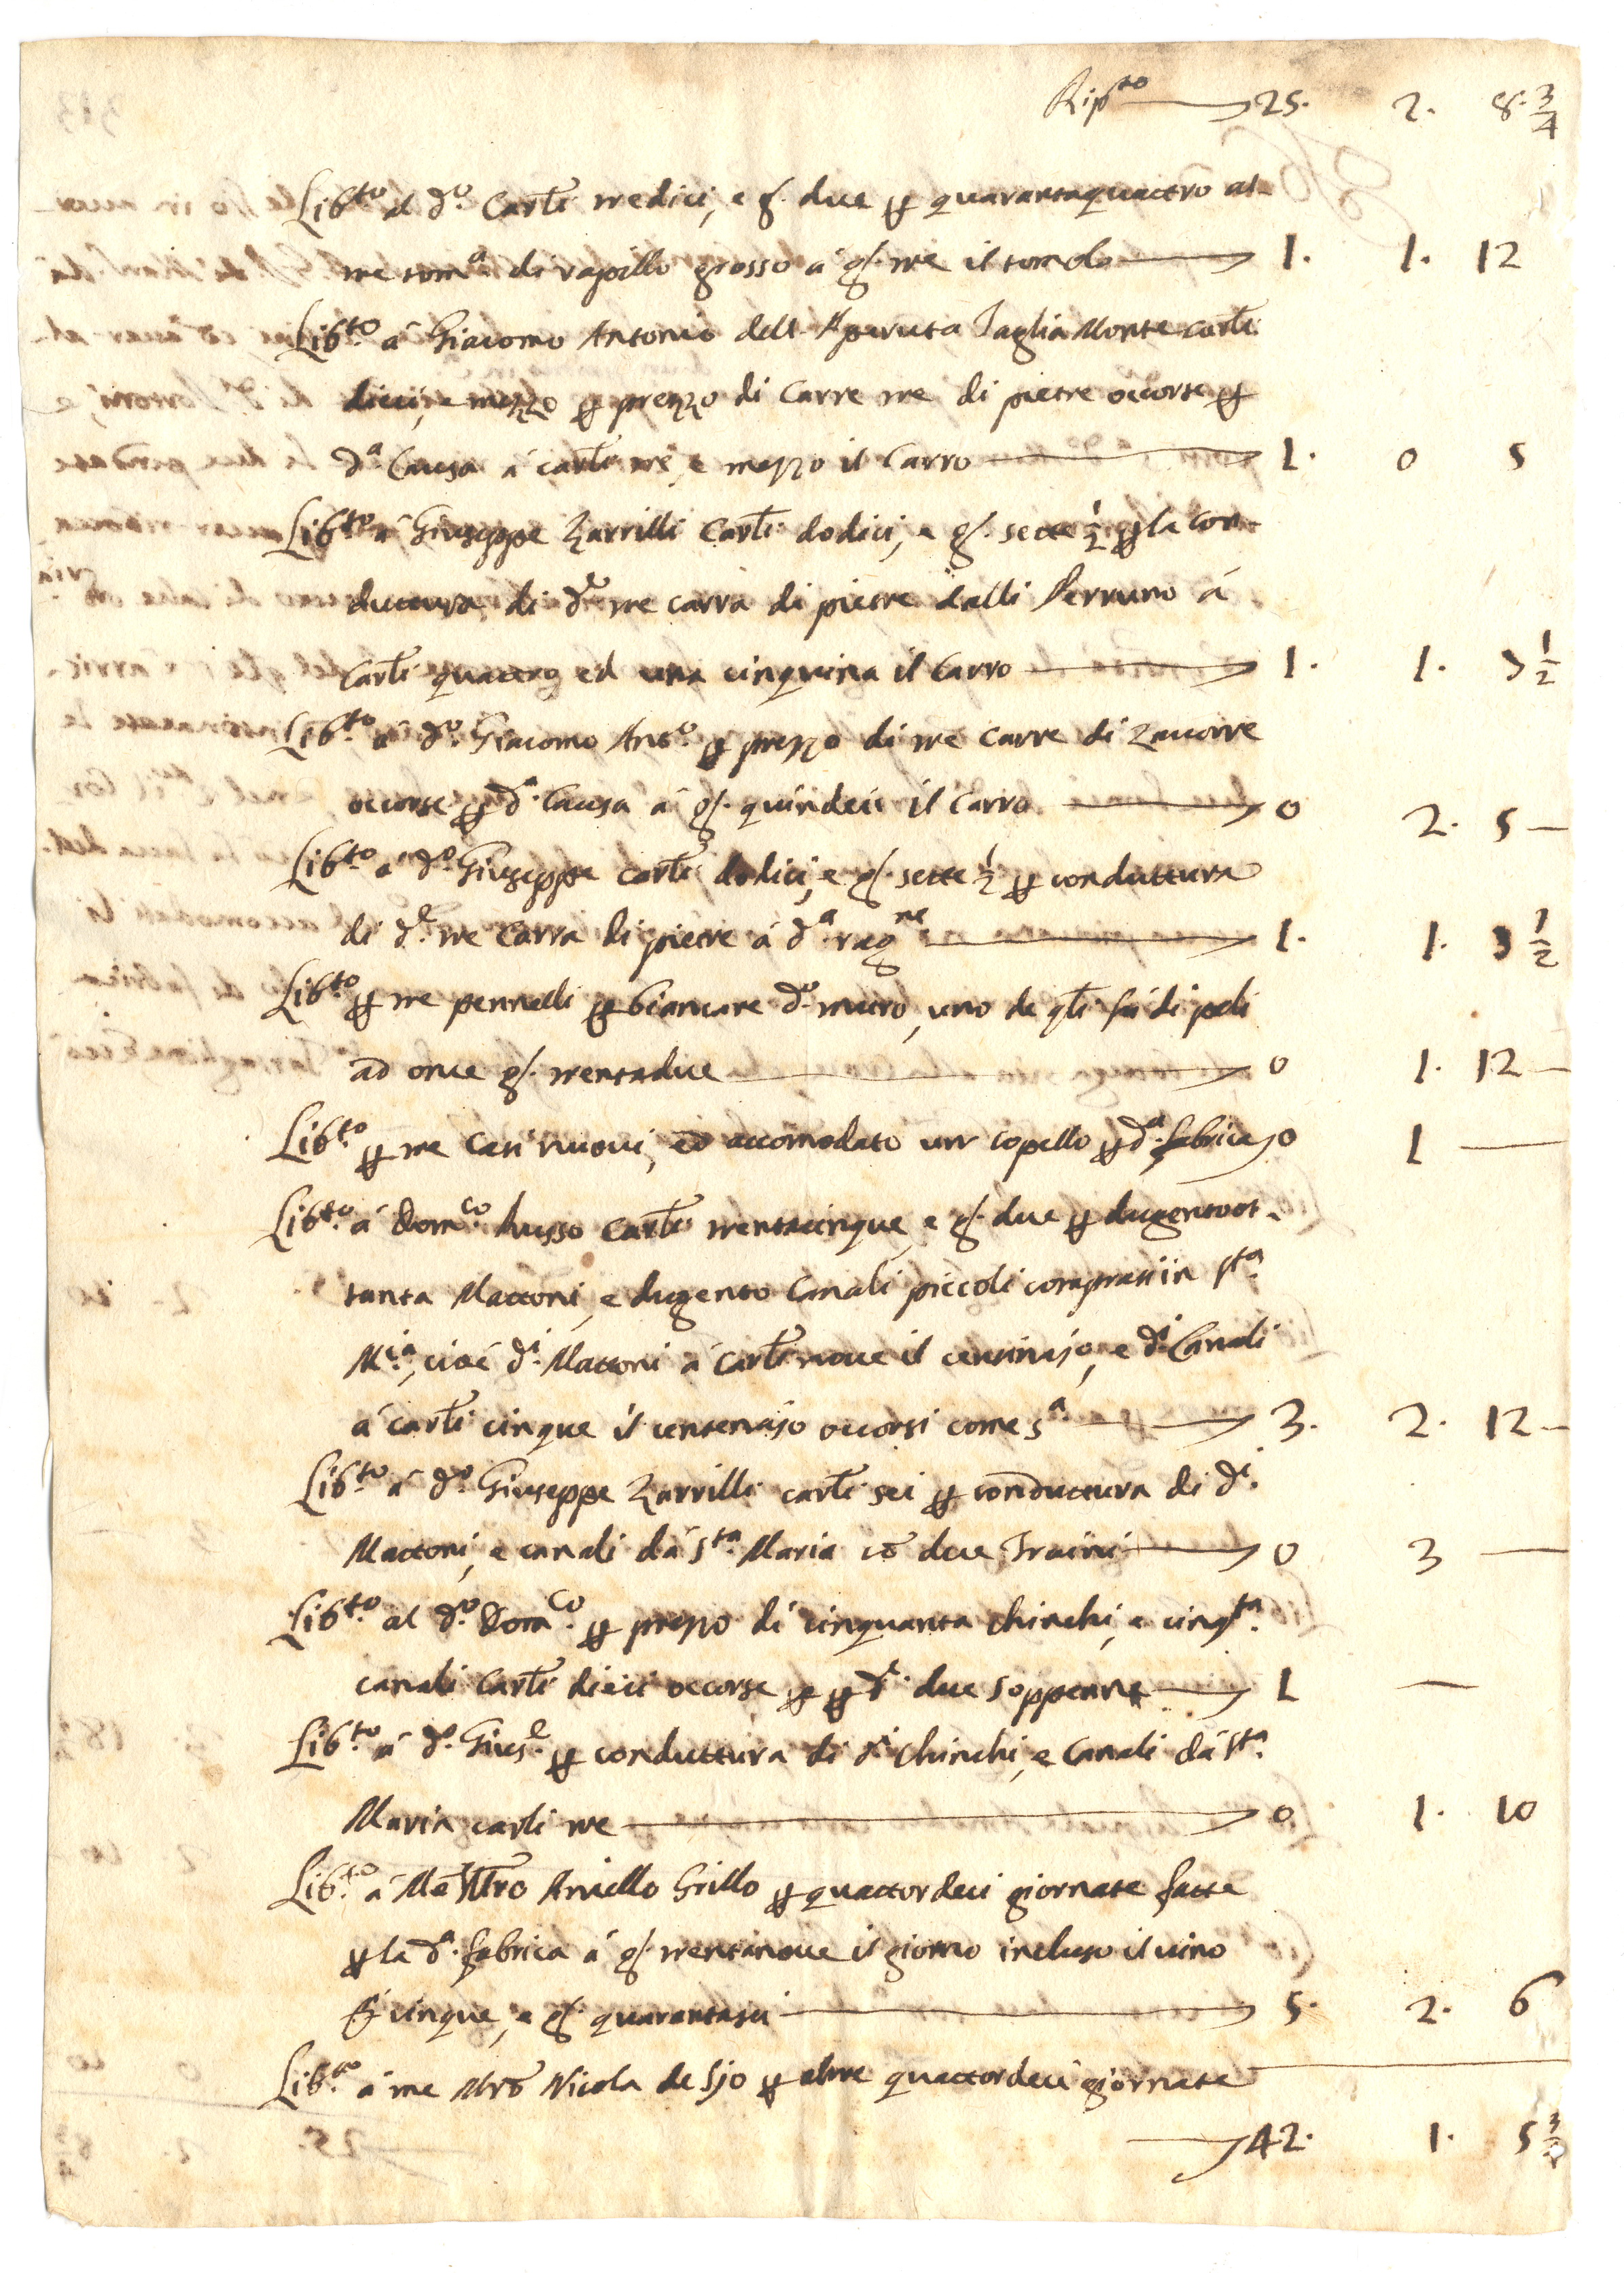 Rip.to 25. 2. 8. 3/4
Lib.to al d.o Carli tredici, e g. due p quarantaquattro al-
tre tom.a di rapillo grosso à g. tre il tomolo 1. 1. 12
Lib.to à Giacomo Antonio dell'Aperuta Taglia Monte Carli
dieci, e mezzo p prezzo di Carre tre di pietre occorse p
d.a Causa à carli tre, e mezzo il Carro 1. 0 5
Lib.to à Giuseppe Zarrilli Carli dodici, e g. sette 1/2 p la con-
duttura di d.e tre carra di pietre dalli Perruno à
Carli quattro ed una cinquina il Carro 1. 1. 7 1/2
Lib.to à d.o Giacomo Ant.o p prezzo di tre carre di Zavorre
occorse p d.a Causa à g. quindeci il Carro 0 2. 5 —
Lib.to à d.o Giuseppe Carli dodici, e g. sette 1/2 p conduttura
di d.e tre Carra di pietre à d.a rag.ne 1. 1. 7 1/2
Lib.to p tre pennelli p biancare d.o muro, uno de q.li fù di peli
ad once g. trentadue 0 1. 12 —
Lib.to p tre Cati nuovi, ed accomodato un copello p d.a fabrica 0 1 —
Lib.to à Dom.co Russo Carli trentacinque, e g. due p dugentoot-
tanta Mattoni, e dugento Canali piccoli comprati in S.ta
M.ia, cioè d.i Mattoni à Carli nove il centinajo, e d.i Canali
à carli cinque il centenajo occorsi come s.a 3. 2. 12 —
Lib.to à d.o Giuseppe Zarrilli carli sei p conduttura di d.i
Mattoni, e canali dà S.ta Maria cō due Traini 0 3 —
Lib.to al d.o Dom.co p prezzo di cinquanta chinchi, e cinq.ta
canali Carli dieci occorse p d.e due soppenne 1 —
Lib.to à d.o Gius.e p conduttura di d.i chinchi, e Canali dà S.ta
Maria carli tre 0 1. 10
Lib.to à Mastro Aniello Grillo p quattordeci giornate fatte
p la d.a fabrica à g. trentanove il giorno incluso il vino
cinque, e g. quarantasei 5. 2. 6
Lib.to à me Mro Nicola de Sjo p altre quattordeci giornate
42. 1. 5 3/4